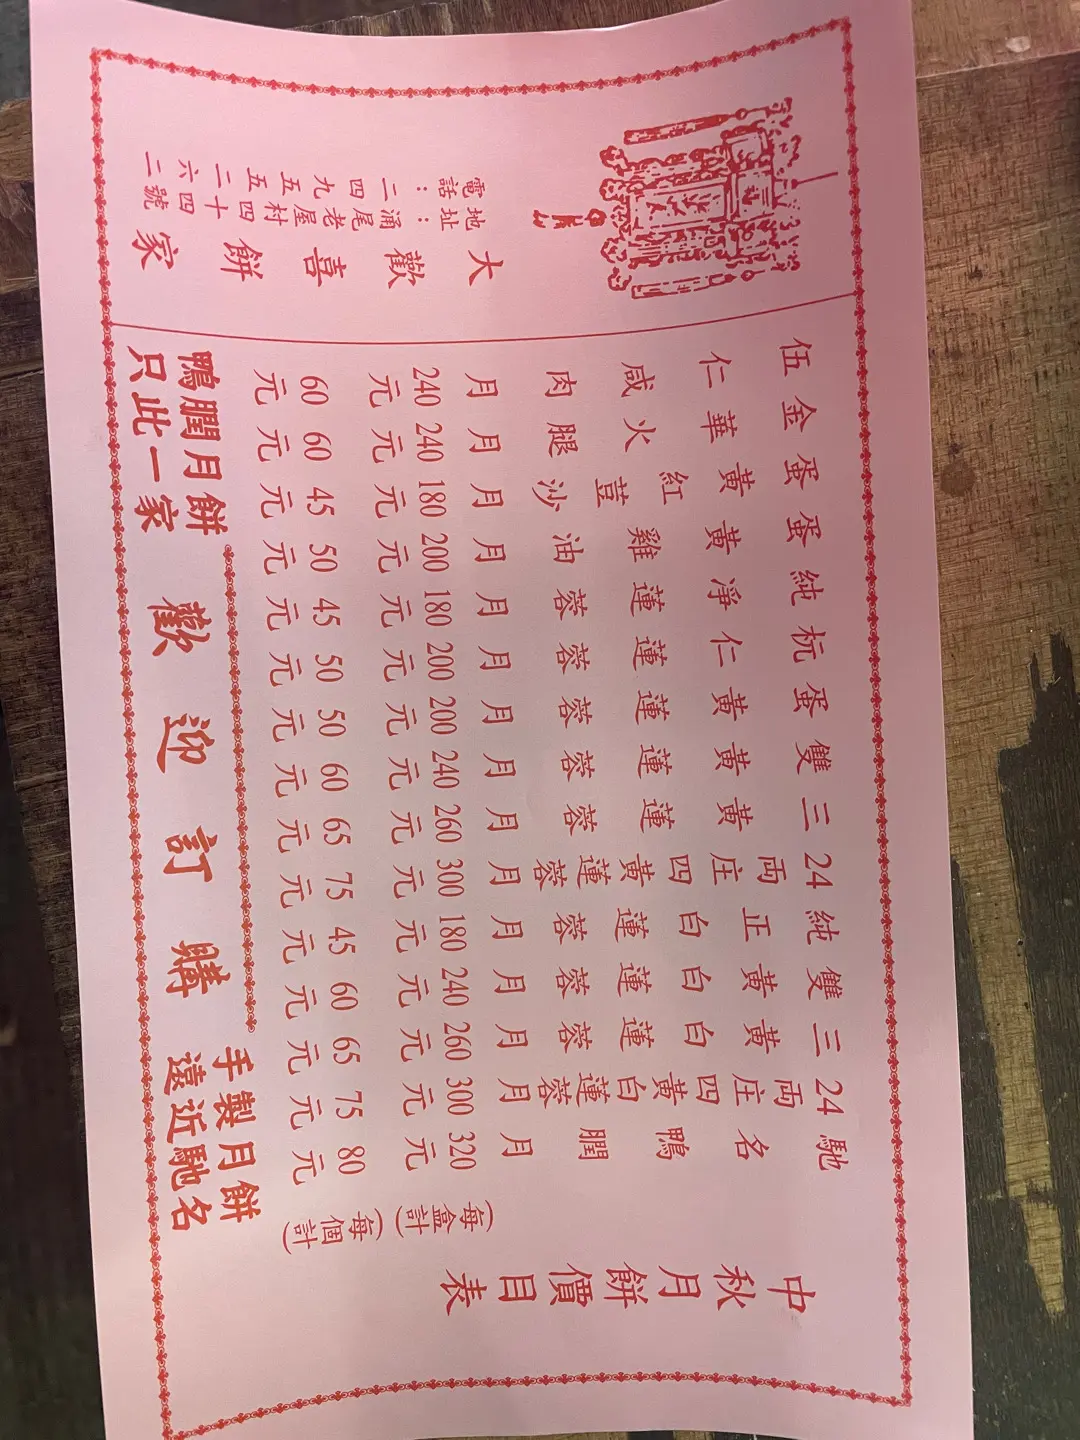 中秋月餅價目表
(每盒計)
(每個計)
馳名鴨膶月 320元 80元
24両庄四黃白蓮蓉月 300元 75元
三黃白蓮蓉月 260元 65元
雙黃白蓮蓉月 240元 60元
純正白蓮蓉月 180元 45元
24両庄四黃蓮蓉月 300元 75元
三黃蓮蓉月 260元 65元
雙黃蓮蓉月 240元 60元
蛋黃蓮蓉月 200元 50元
杬仁蓮蓉月 200元 50元
純淨蓮蓉月 180元 45元
蛋黃雞油月 200元 50元
蛋黃紅荳沙月 180元 45元
金華火腿月 240元 60元
伍仁咸肉月 240元 60元
手製月餅
遠近馳名
歡迎訂購
鴨膶月餅
只此一家
大歡喜餅家
地址：涌尾老屋村四十四號
電話：